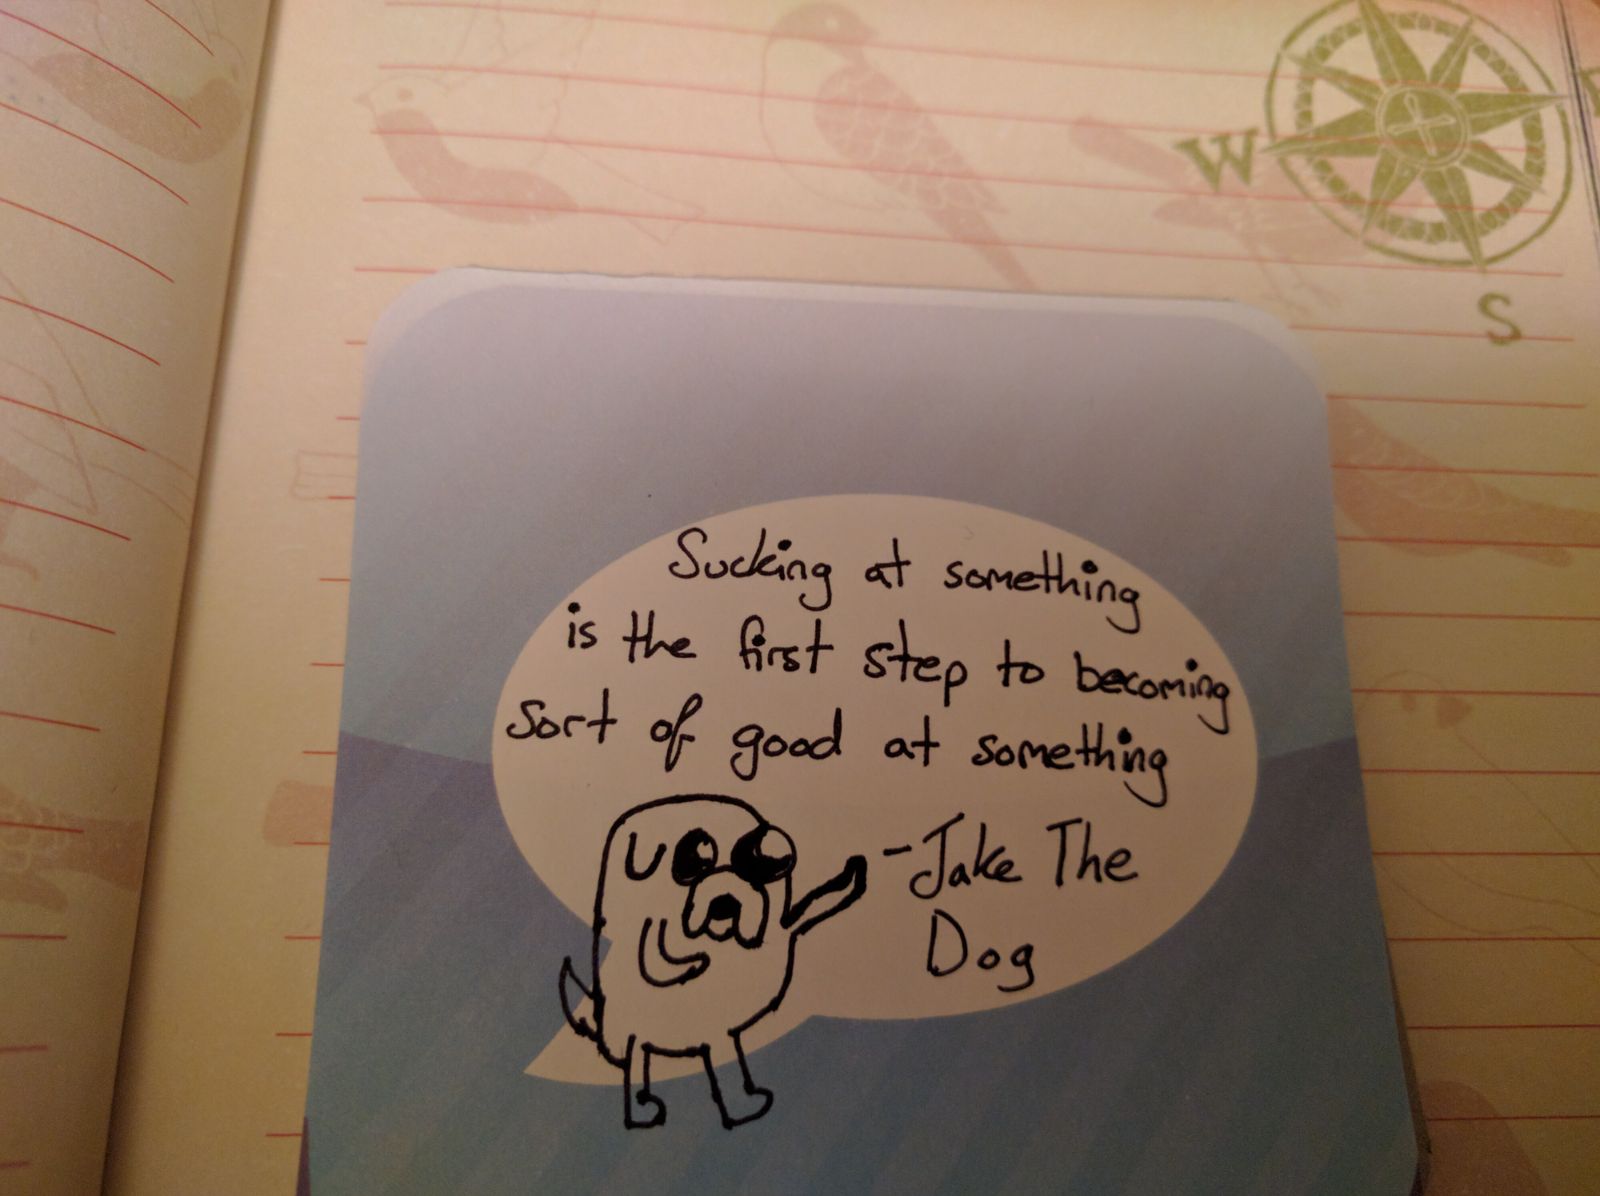 W
S
Sucking at something
is the first step to becoming
sort of good at something
-Jake The
Dog